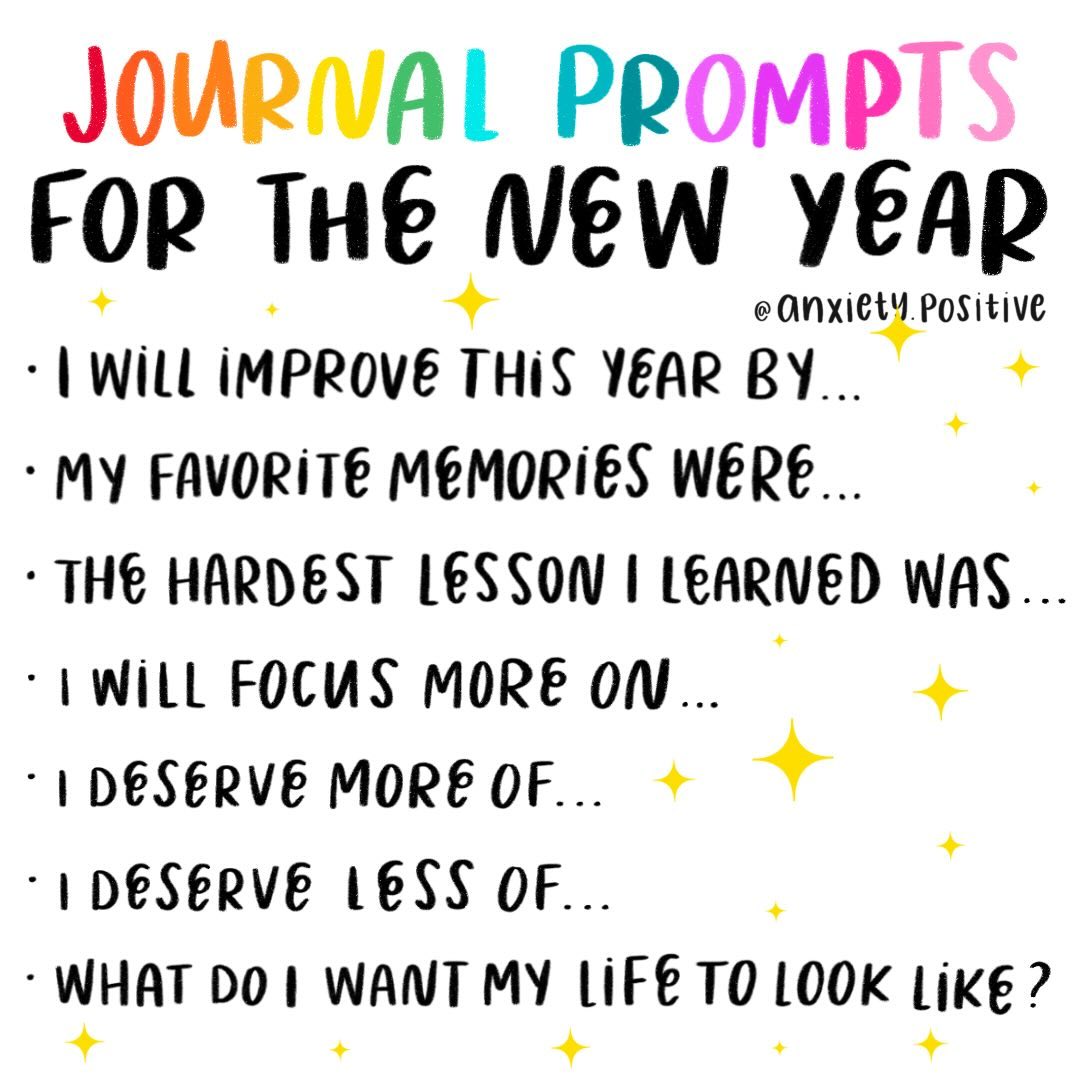 JOURNAL PROMPTS
FOR THE NEW YEAR
@anxiety.positive
· I WILL IMPROVE THIS YEAR BY...
· MY FAVORITE MEMORIES WERE...
· THE HARDEST LESSON I LEARNED WAS...
· I WILL FOCUS MORE ON...
· I DESERVE MORE OF...
· I DESERVE LESS OF...
· WHAT DO I WANT MY LIFE TO LOOK LIKE?